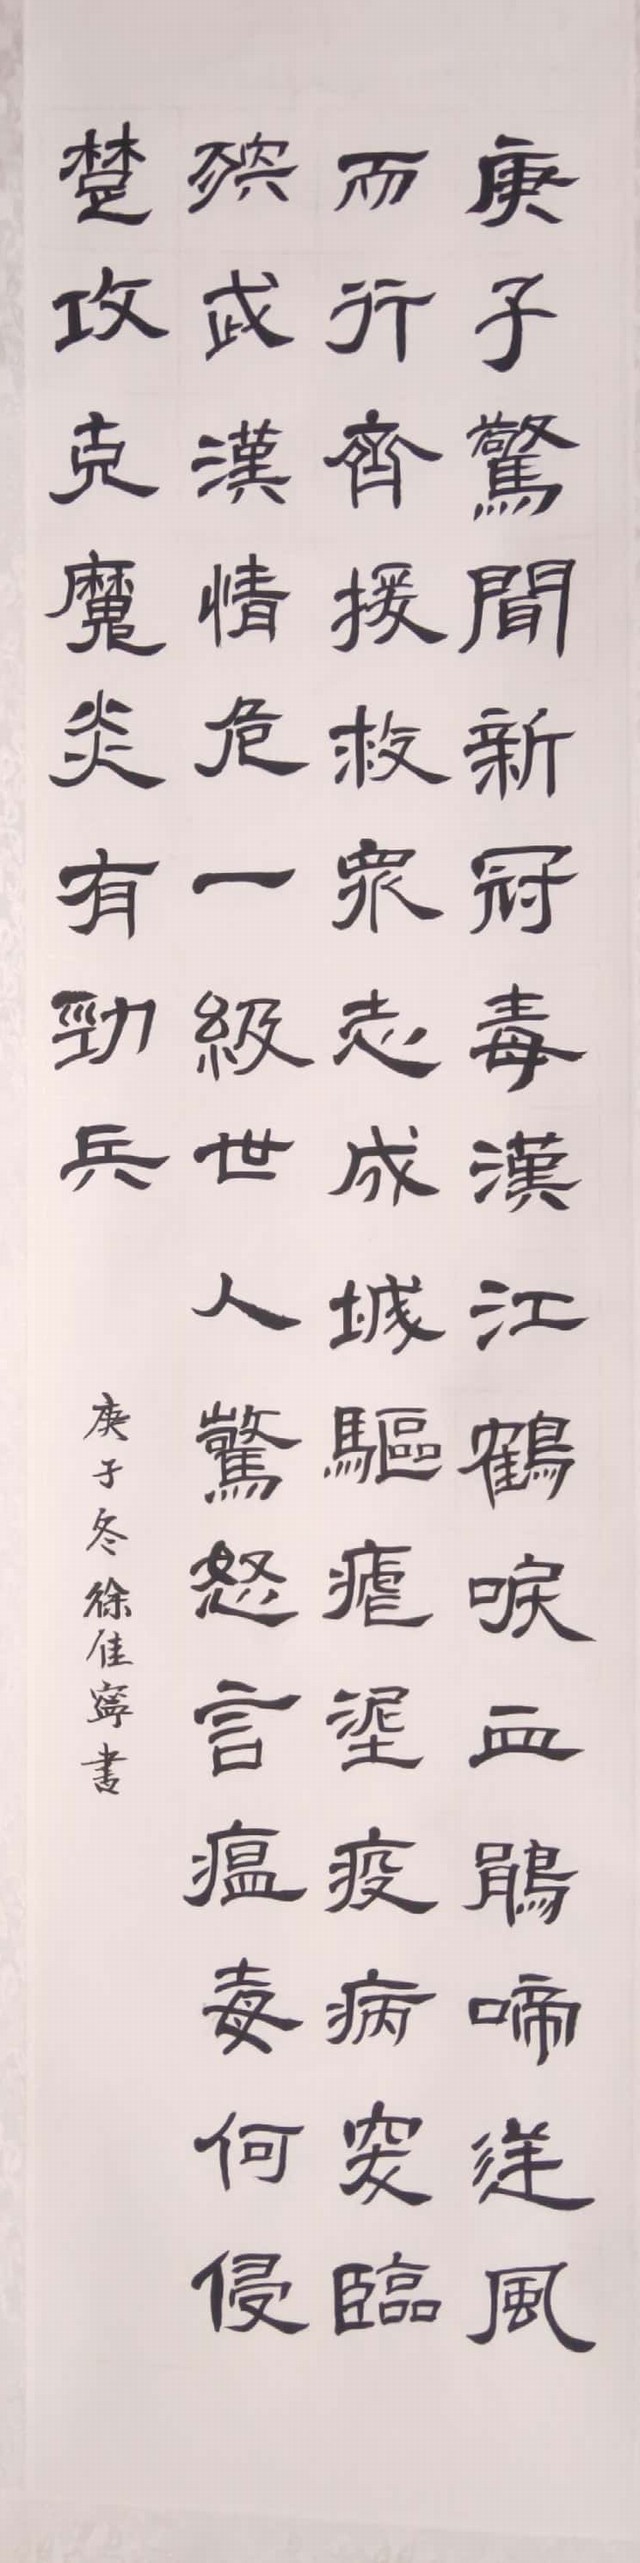 庚子驚聞新冠毒漢江鶴唳血鵑啼逆風
而行齊援救衆志成城驅瘧埿疫病突臨
殃武漢情危一級世人驚怒言瘟毒何侵
楚攻克魔炎有勁兵
庚子冬徐佳寧書